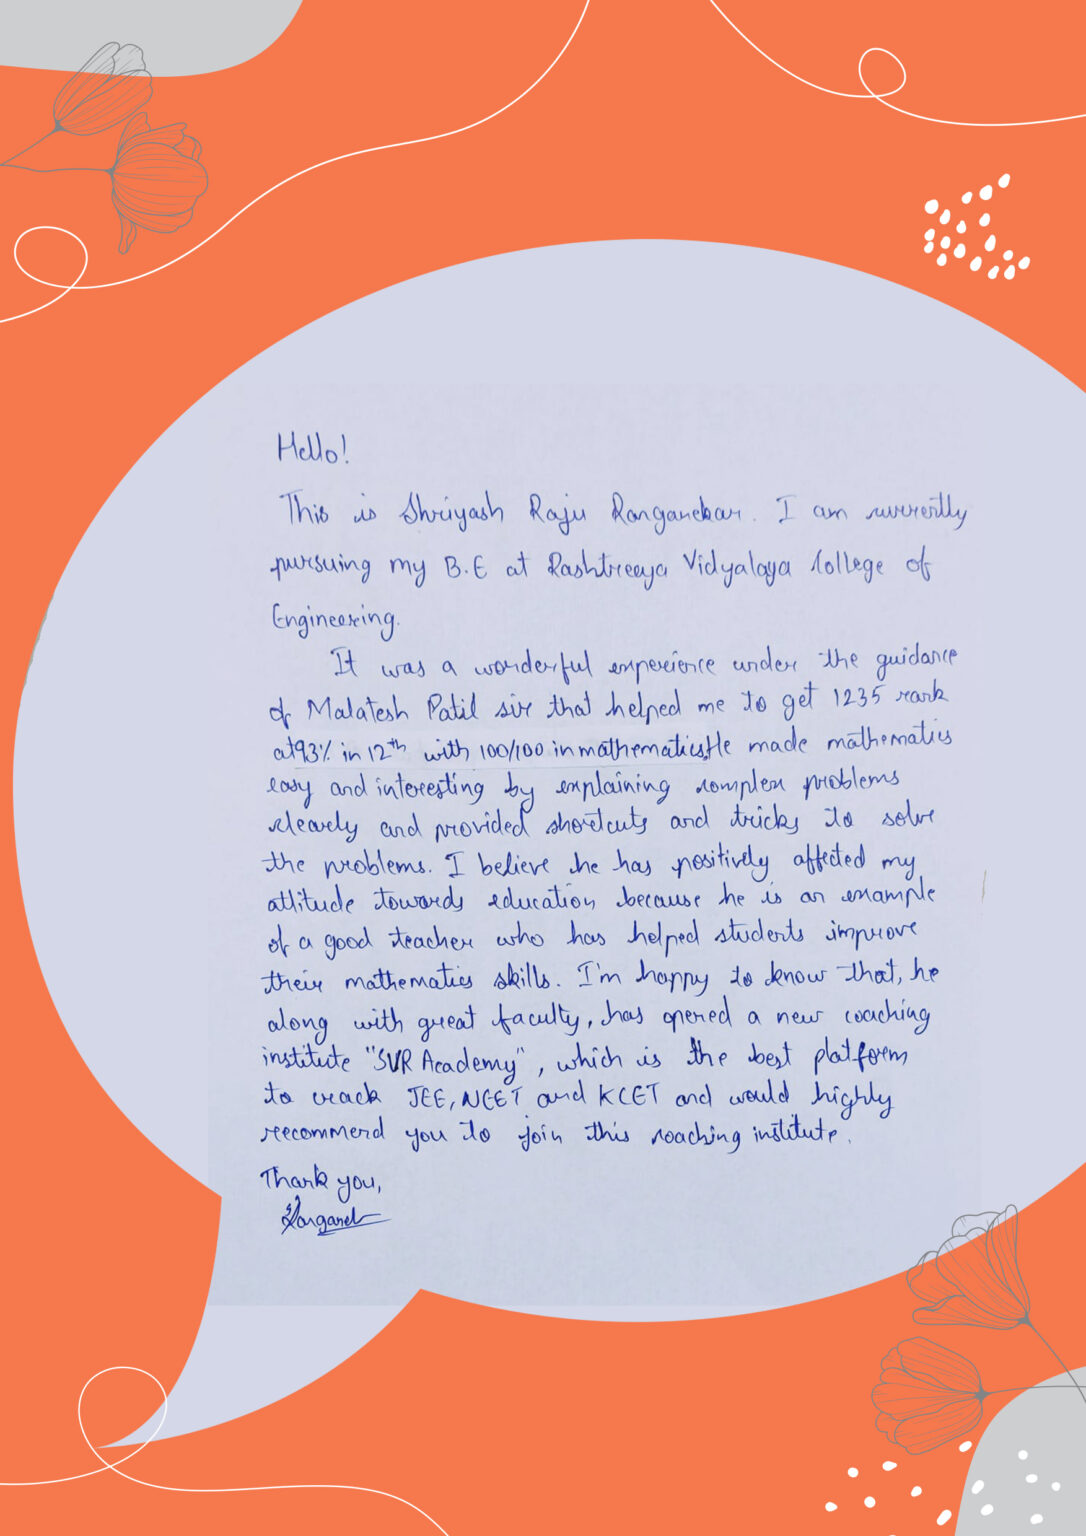 Hello!
This is Shriyash Raju Ranganekar. I am currently
pursuing my B.E at Rashtreeya Vidyalaya College of
Engineering.
It was a wonderful experience under the guidance
of Malatesh Patil sir that helped me to get 1235 rank
at 93% in 12th with 100/100 in mathematics. He made mathematics
easy and interesting by explaining complex problems
clearly and provided shortcuts and tricks to solve
the problems. I believe he has positively affected my
attitude towards education because he is an example
of a good teacher who has helped students improve
their mathematics skills. I'm happy to know that, he
along with great faculty, has opened a new coaching
institute "SVR Academy", which is the best platform
to crack JEE, NEET and KCET and would highly
recommend you to join this coaching institute.
Thank you,